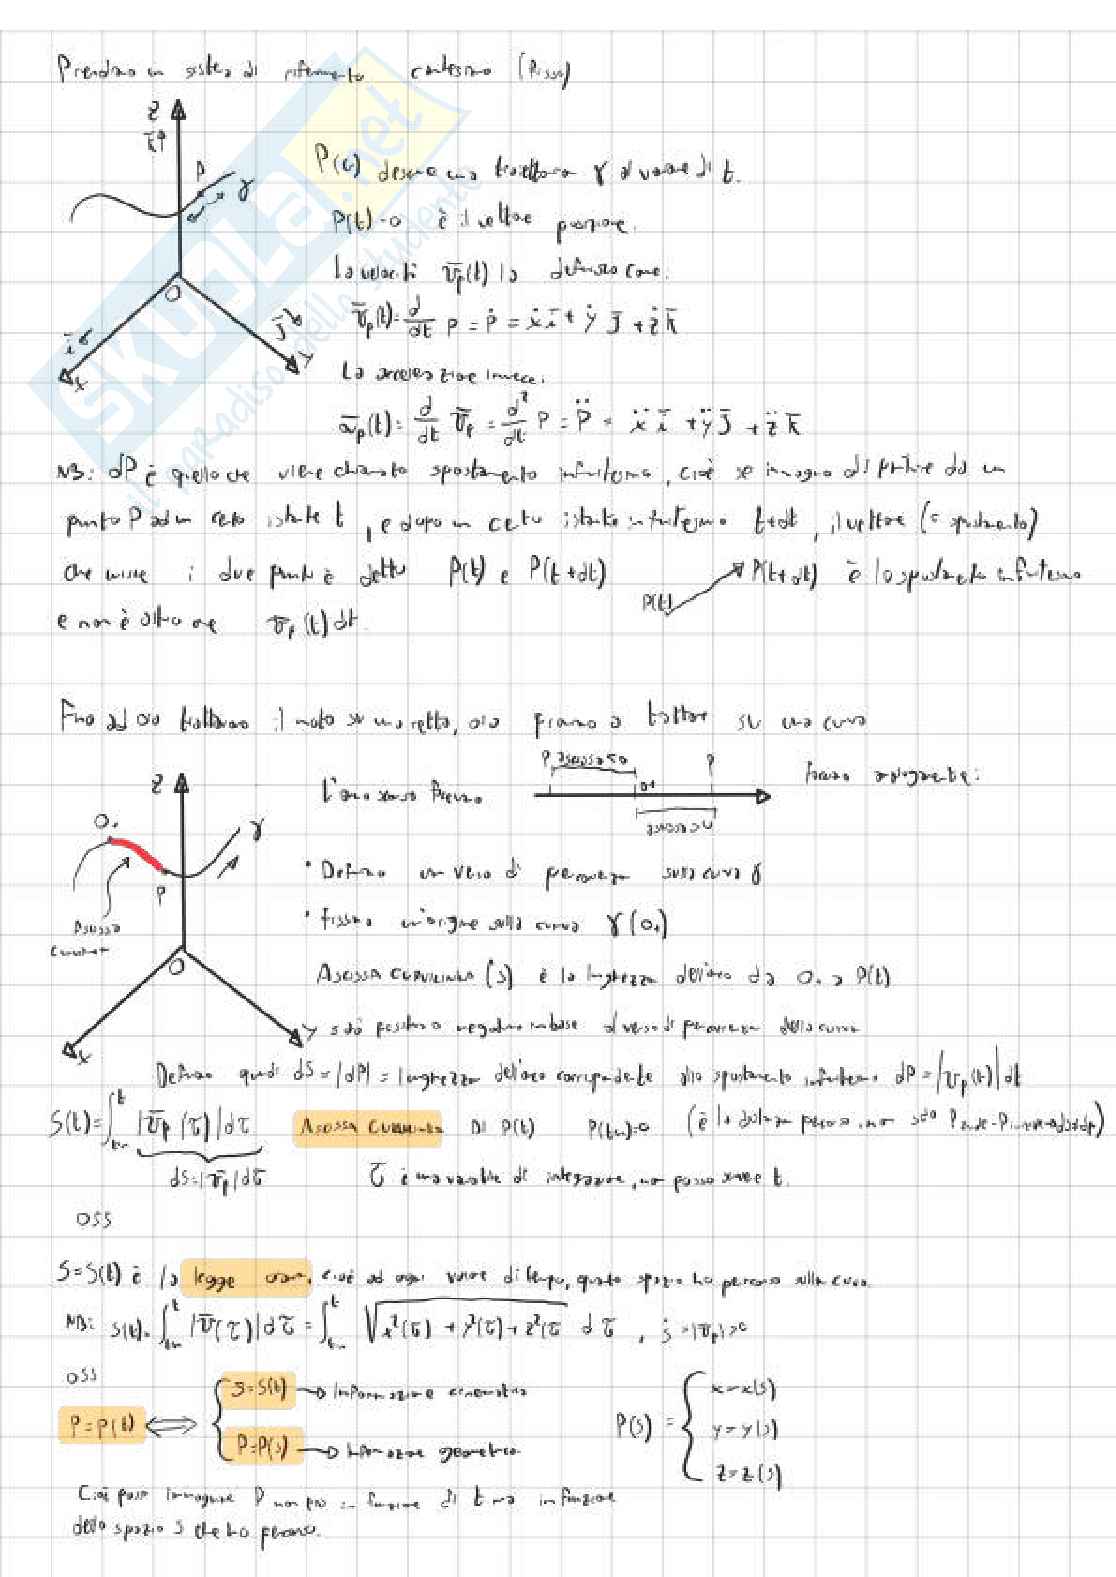 Prendiamo un sistema di riferimento cartesiano (fisso)
z
k
P
γ
O
i
x
j
y
P(t) descrive una traiettoria γ al variare di t.
P(t)-O è il vettore posizione.
La velocità v̄p(t) la definisco come:
v̄p(t) = d/dt P = Ṗ = ẋ ī + ẏ j̄ + ż k̄
La accelerazione invece:
āp(t) = d/dt v̄p = d²/dt P = P̈ = ẍ ī + ÿ j̄ + z̈ k̄
NB: dP è quello che viene chiamato spostamento infinitesimo, cioè se immagino di partire da un
punto P ad un certo istante t, e dopo un certo istante infinitesimo t+dt, il vettore (= spostamento)
che unisce i due punti è detto P(t) e P(t+dt)
P(t)
P(t+dt) è lo spostamento infinitesimo
e non è altro che v̄p(t)dt.
Fino ad ora trattavamo il moto su una retta, ora proviamo a trattare su una curva
P ascissa<0
P
ascissa>0
z
O₁
γ
P
Ascissa
O
x
y
• Definiamo un verso di percorrenza sulla curva γ
• Fissiamo un'origine sulla curva γ (O₁)
ASCISSA CURVILINEA (s) è la lunghezza dell'arco da O₁ a P(t)
s sarà positivo o negativo in base al verso di percorrenza della curva
Definiamo quindi dS = |dP| = lunghezza dell'arco corrispondente allo spostamento infinitesimo dP = |v̄p(t)|dt
S(t) = ∫ |v̄p(τ)|dτ ASCISSA CURVILINEA DI P(t)
dS=|v̄p|dτ
τ è una variabile di integrazione, non posso usare t.
OSS
S=S(t) è la legge oraria, cioè ad ogni valore di tempo, quanto spazio ho percorso sulla curva.
NB: S(t)= ∫ |v̄(τ)|dτ = ∫ √ẋ²(τ) + ẏ²(τ) + ż²(τ) dτ , ṡ = |v̄p| > 0
OSS
P=P(t) ⟺ { S=S(t) → Informazione cinematica
P=P(s) → Informazione geometrica
P(s) = { x=x(s)
y=y(s)
z=z(s)
Cioè posso immaginare P non più in funzione di t ma in funzione
dello spazio s che ho percorso.
SKUOLA.net
il paradiso dello studente